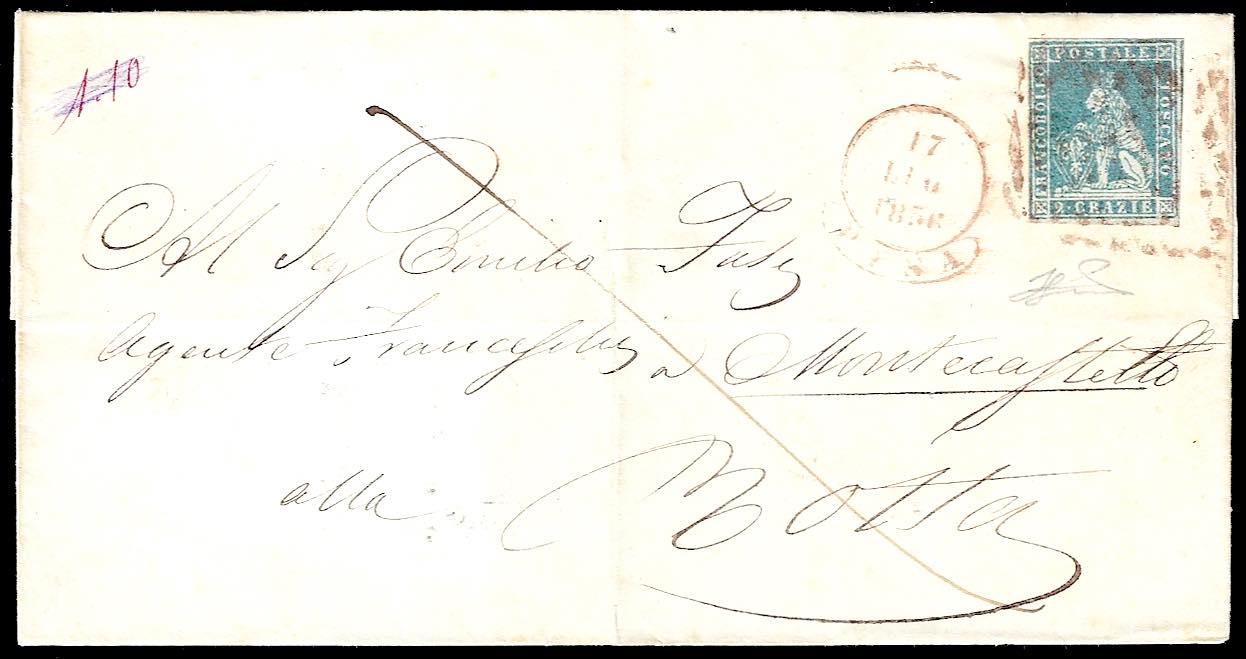 1.10
FRANCOBOLLO POSTALE TOSCANO
2·CRAZIE
17
LUG
1856
PISA
Al Sig Emilio
Agente Franceschi a Montecastello
alla Rotta